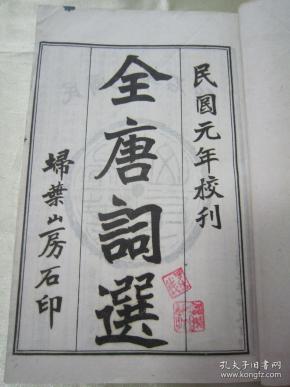 民国元年校刊
全唐詞選
埽葉山房石印
孔夫子旧书网